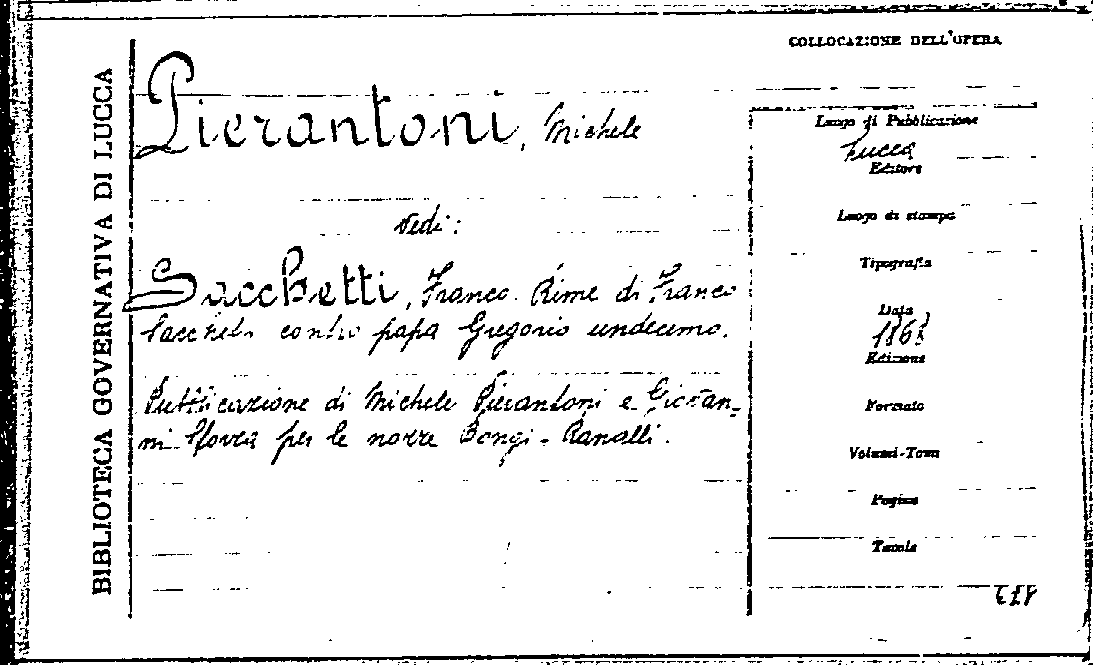 COLLOCAZIONE DELL'OPERA
BIBLIOTECA GOVERNATIVA DI LUCCA
Pierantoni, Michele
Vedi:
Sacchetti, Franco. Rime di Franco
Sacchetti contro papa Gregorio undecimo.
Pubblicazione di Michele Pierantoni e Giovan-
ni Sforza per le nozze Bongi-Ranalli.
Luogo di Pubblicazione
Lucca
Editore
Luogo di stampa
Tipografia
Data
Edizione
Formato
Volumi-Tomi
Pagine
Tavole